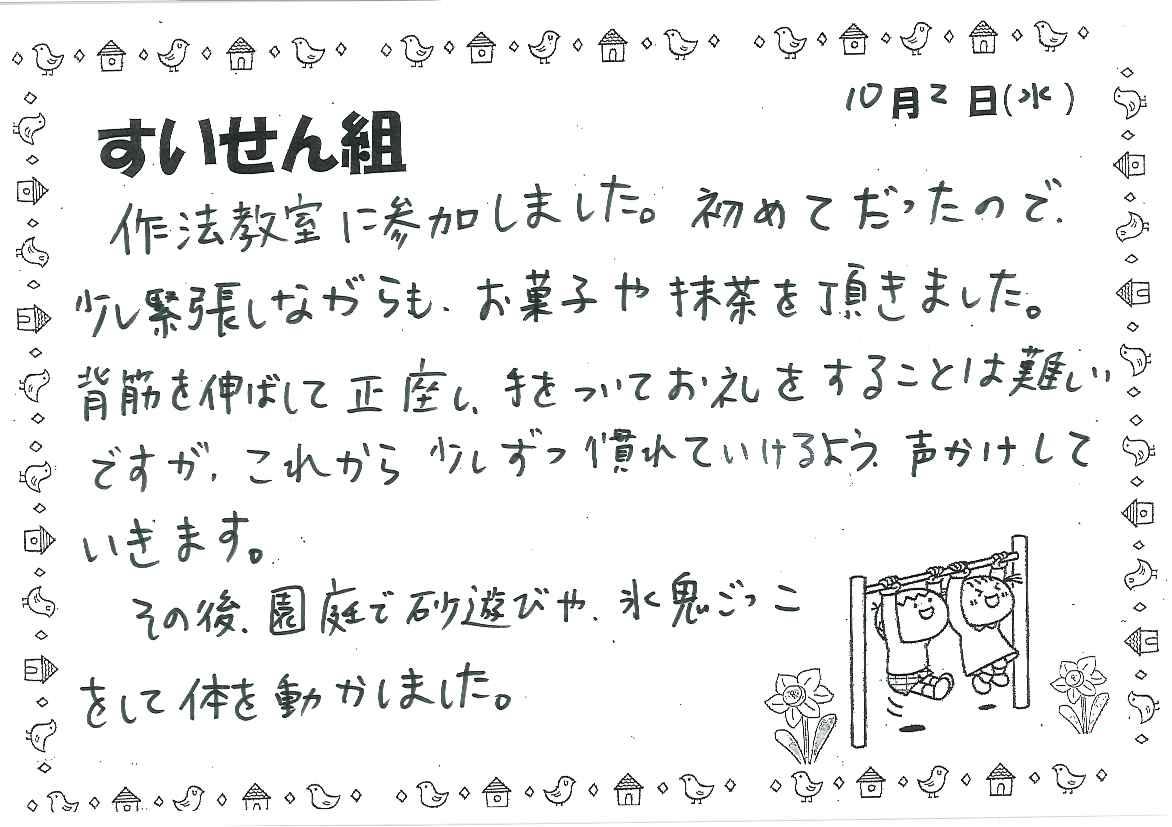 10月2日(水)
すいせん組
作法教室に参加しました。初めてだったので、
少し緊張しながらも、お菓子や抹茶を頂きました。
背筋を伸ばして正座し、手をついてお礼をすることは難しい
ですが、これから少しずつ慣れていけるよう、声かけして
いきます。
その後、園庭で砂遊びや、氷鬼ごっこ
をして体を動かしました。